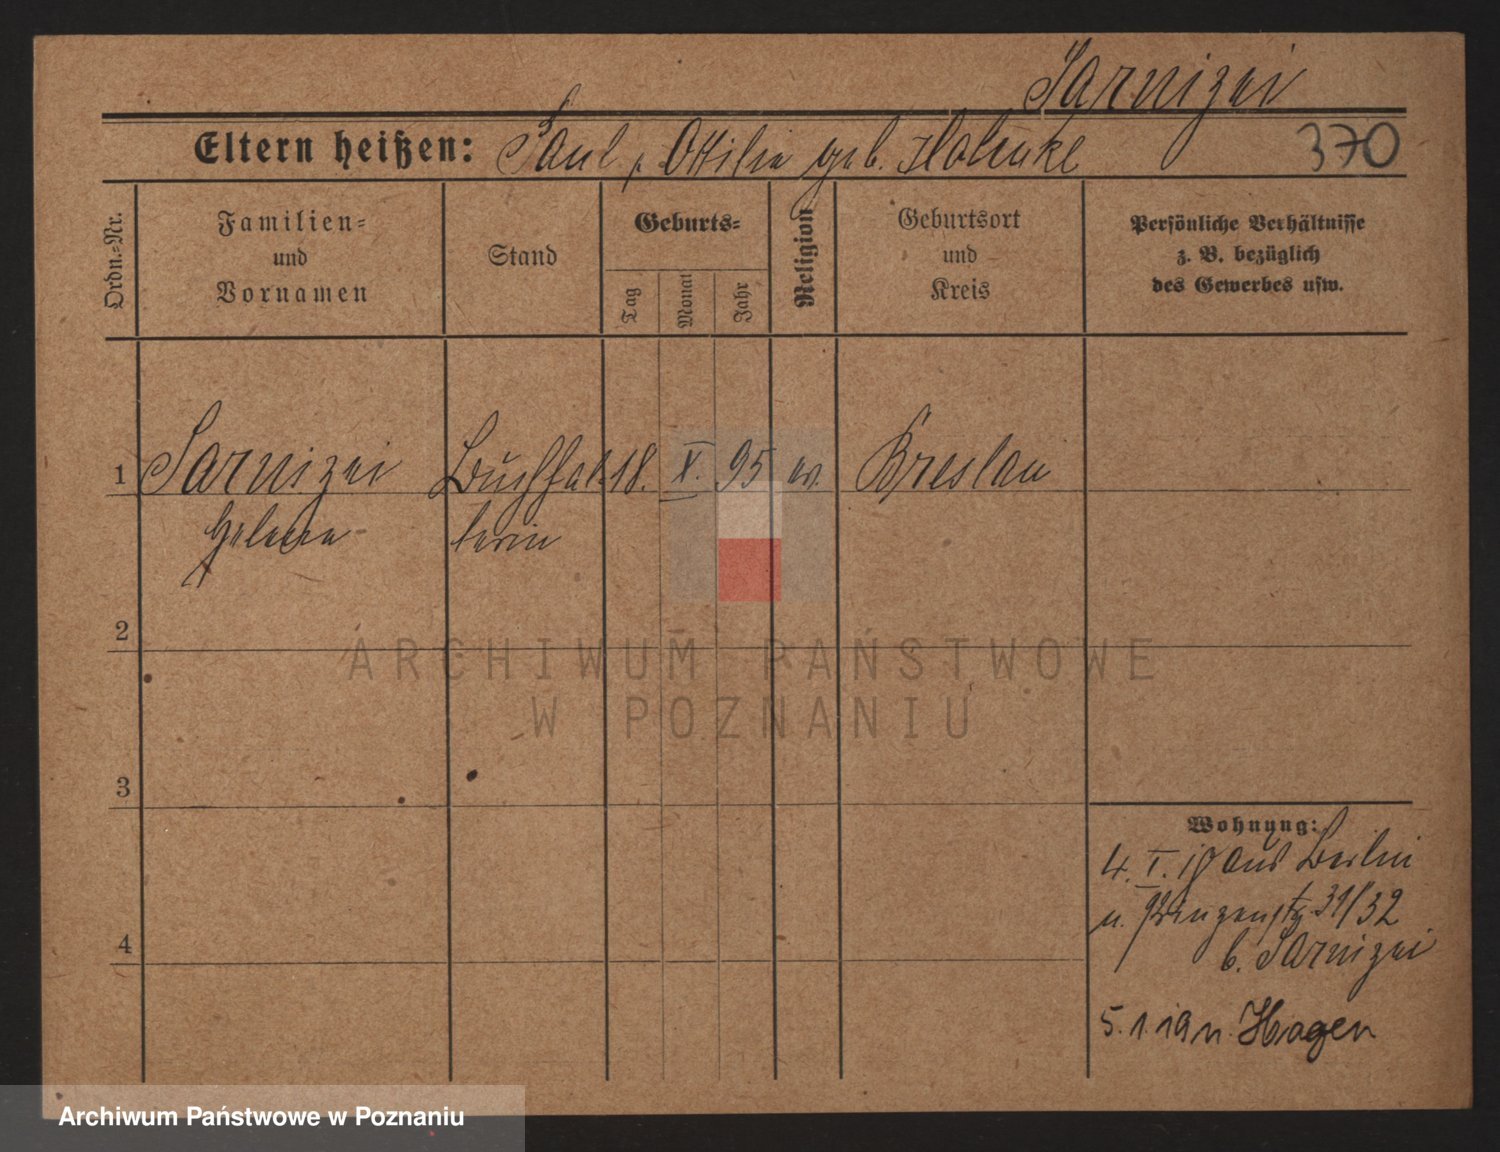 Sarnizei
Eltern heißen: Paul, Ottilie geb. 370
Ordn.=Nr.
Familien=
und
Vornamen
Stand
Geburts=
Tag
Monat
Jahr
Religion
Geburtsort
und
Kreis
Persönliche Verhältnisse
z. B. bezüglich
des Gewerbes usw.
1 Sarnizei Buchhal- 18. X. 95 ev. Breslau
Helene terin
2
3
4
Wohnung:
4. I. 19 aus Berlin
n. Prinzenstr. 31/32
b. Sarnizei
5. 1. 19 n. Hagen
ARCHIWUM PAŃSTWOWE
W POZNANIU
Archiwum Państwowe w Poznaniu